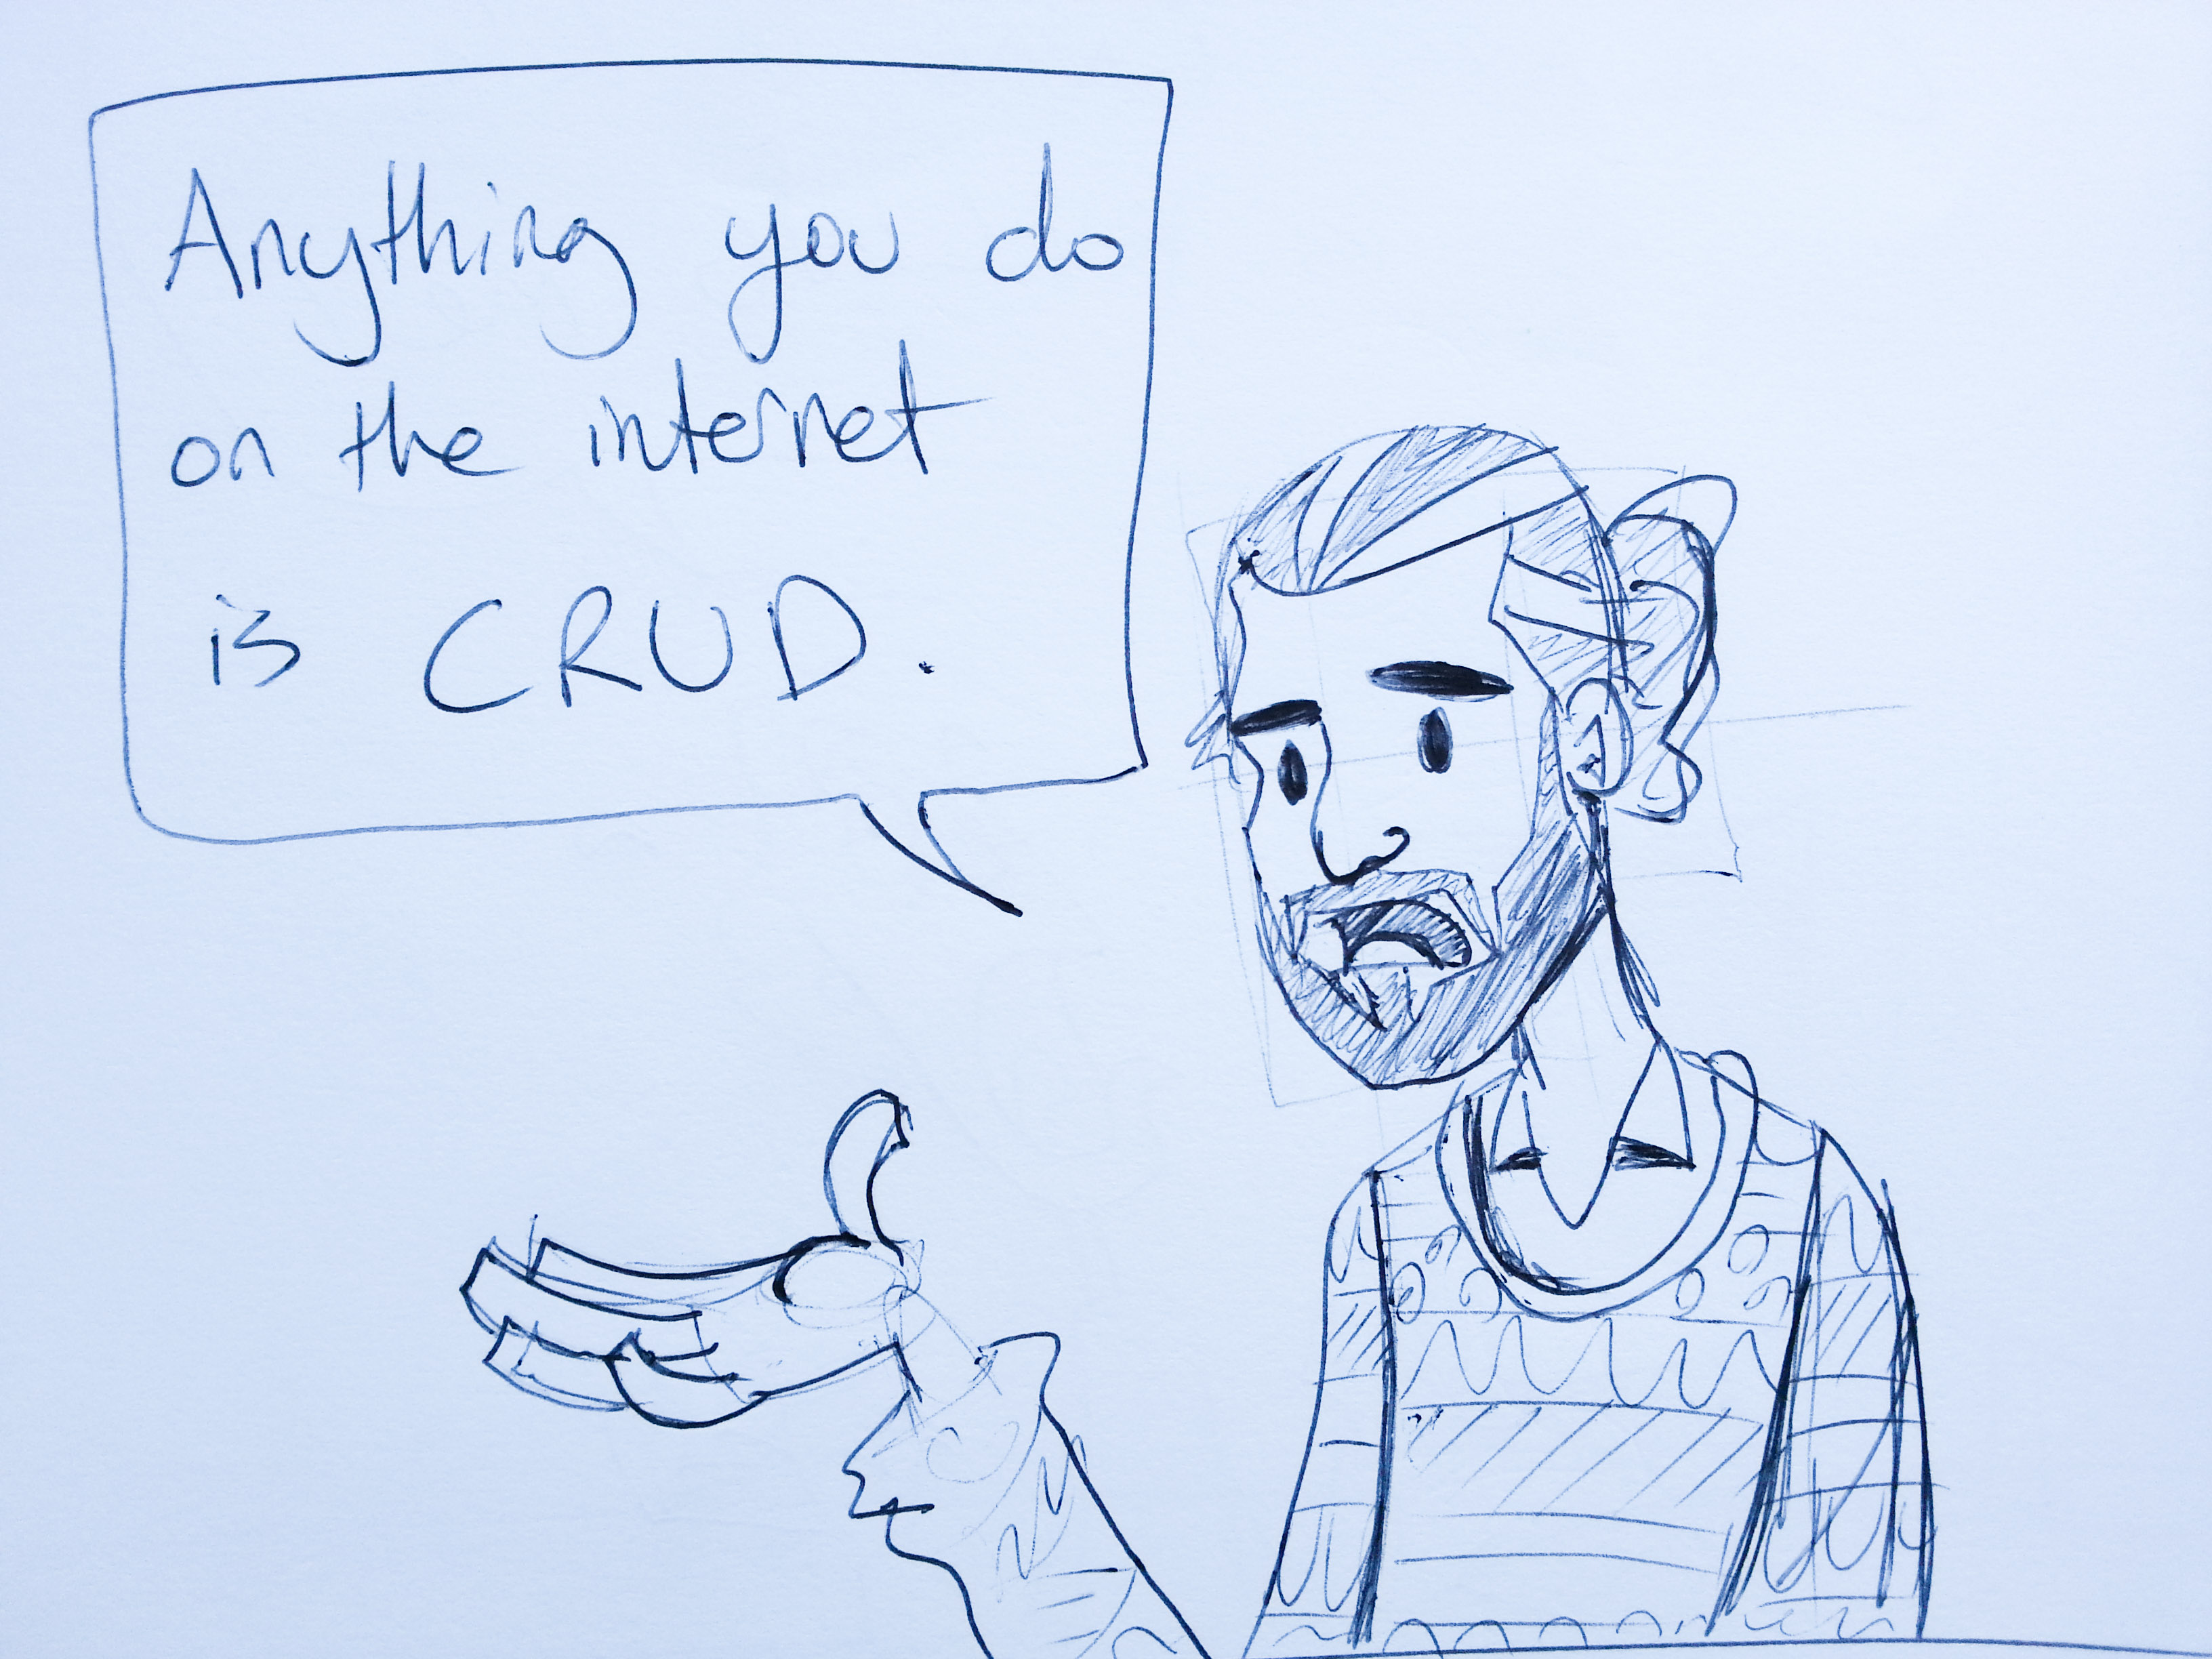 Anything you do
on the internet
is CRUD.